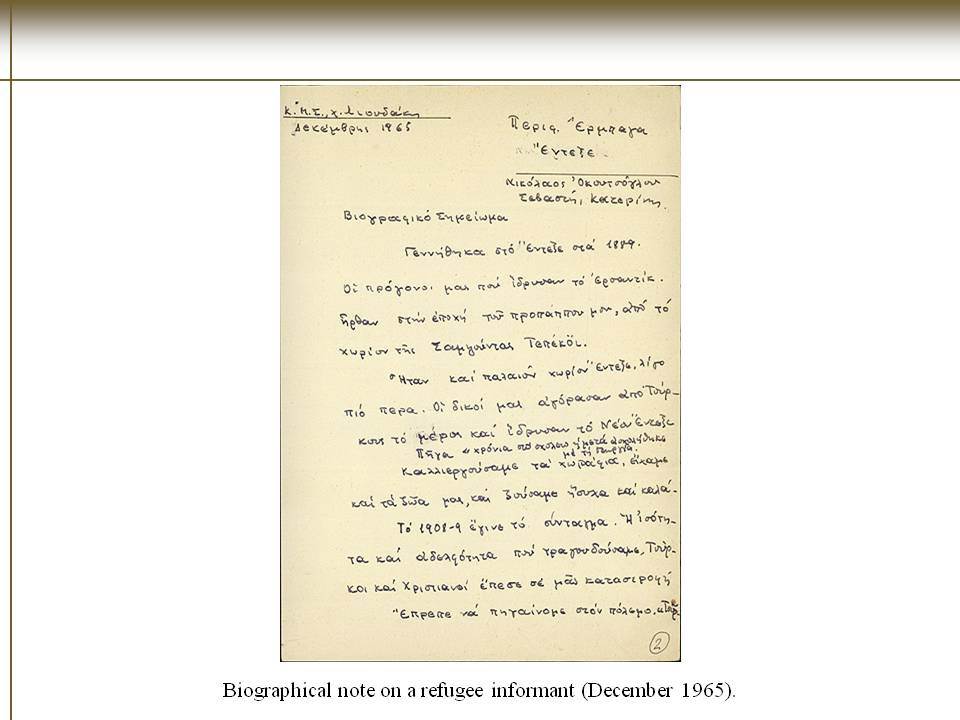 Κ.Μ.Σ., Χ. Λιουδάκη
Δεκέμβρης 1965
Περιφ. Ἔρμπαγα
Ἔντεξε
Νικόλαος Ὀκουτσόγλου
Σεβαστή, Κατερίνης.
Βιογραφικό Σημείωμα
Γεννήθηκα στό Ἔντεξε στά 1889.
Οἱ πρόγονοι μας πού ἵδρυσαν τό
ἦρθαν στήν ἐποχή τοῦ προπάππου μου, ἀπό τό
χωρίον τῆς Σαμψούντας Τεπέκὀϊ.
Ἦταν καί παλαιόν χωρίον Ἔντεξε, λίγο
πιό πέρα. Οἱ δικοί μας ἀγόρασαν ἀπό Τούρ-
κους τό μέρος καί ἵδρυσαν τό Νέον Ἔντεξε
Πῆγα 4 χρόνια στό σχολειο ἡ μετά ἀσχολήθηκα
μέ τή γεωργία.
Καλλιεργούσαμε τά χωράφια, εἴχαμε
καί τά ζῶα μας, καί ζούσαμε ἥσυχα καί καλά.
Τό 1908-9 ἔγινε τό σύνταγμα. Ἡ ἰσότη-
τα καί ἀδελφότητα πού τραγουδούσαμε, Τοῦρ-
κοι καί Χριστιανοί ἔπεσε σέ μᾶς καταστροφή
Ἔπρεπε νά πηγαίνομε στόν πόλεμο.
2
Biographical note on a refugee informant (December 1965).